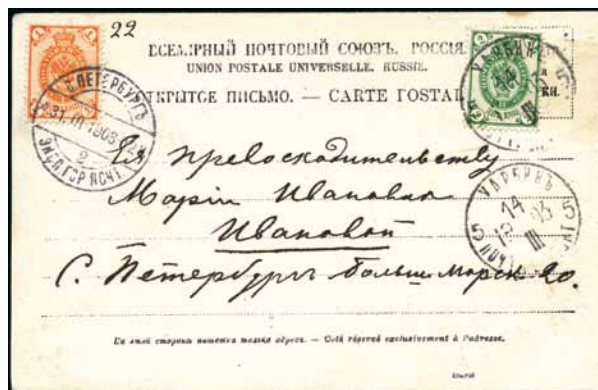 22
ВСЕМІРНЫЙ ПОЧТОВЫЙ СОЮЗЪ. РОССІЯ.
UNION POSTALE UNIVERSELLE. RUSSIE.
ОТКРЫТОЕ ПИСЬМО. — CARTE POSTAL
1
1
2
С.ПЕТЕРБУРГЪ
31.III.1903
2
ЭКСП.ГОР.ПОЧТ.
ХАРБИНЪ
14
III
5
Ея превосходительству
Маріи Ивановнѣ
Ивановой
С. Петербургъ Больш. Морск. 20.
ХАРБИНЪ
14
12 03
III
5 5
На этой сторонѣ пишется только адресъ. — Coté réservé exclusivement à l'adresse.